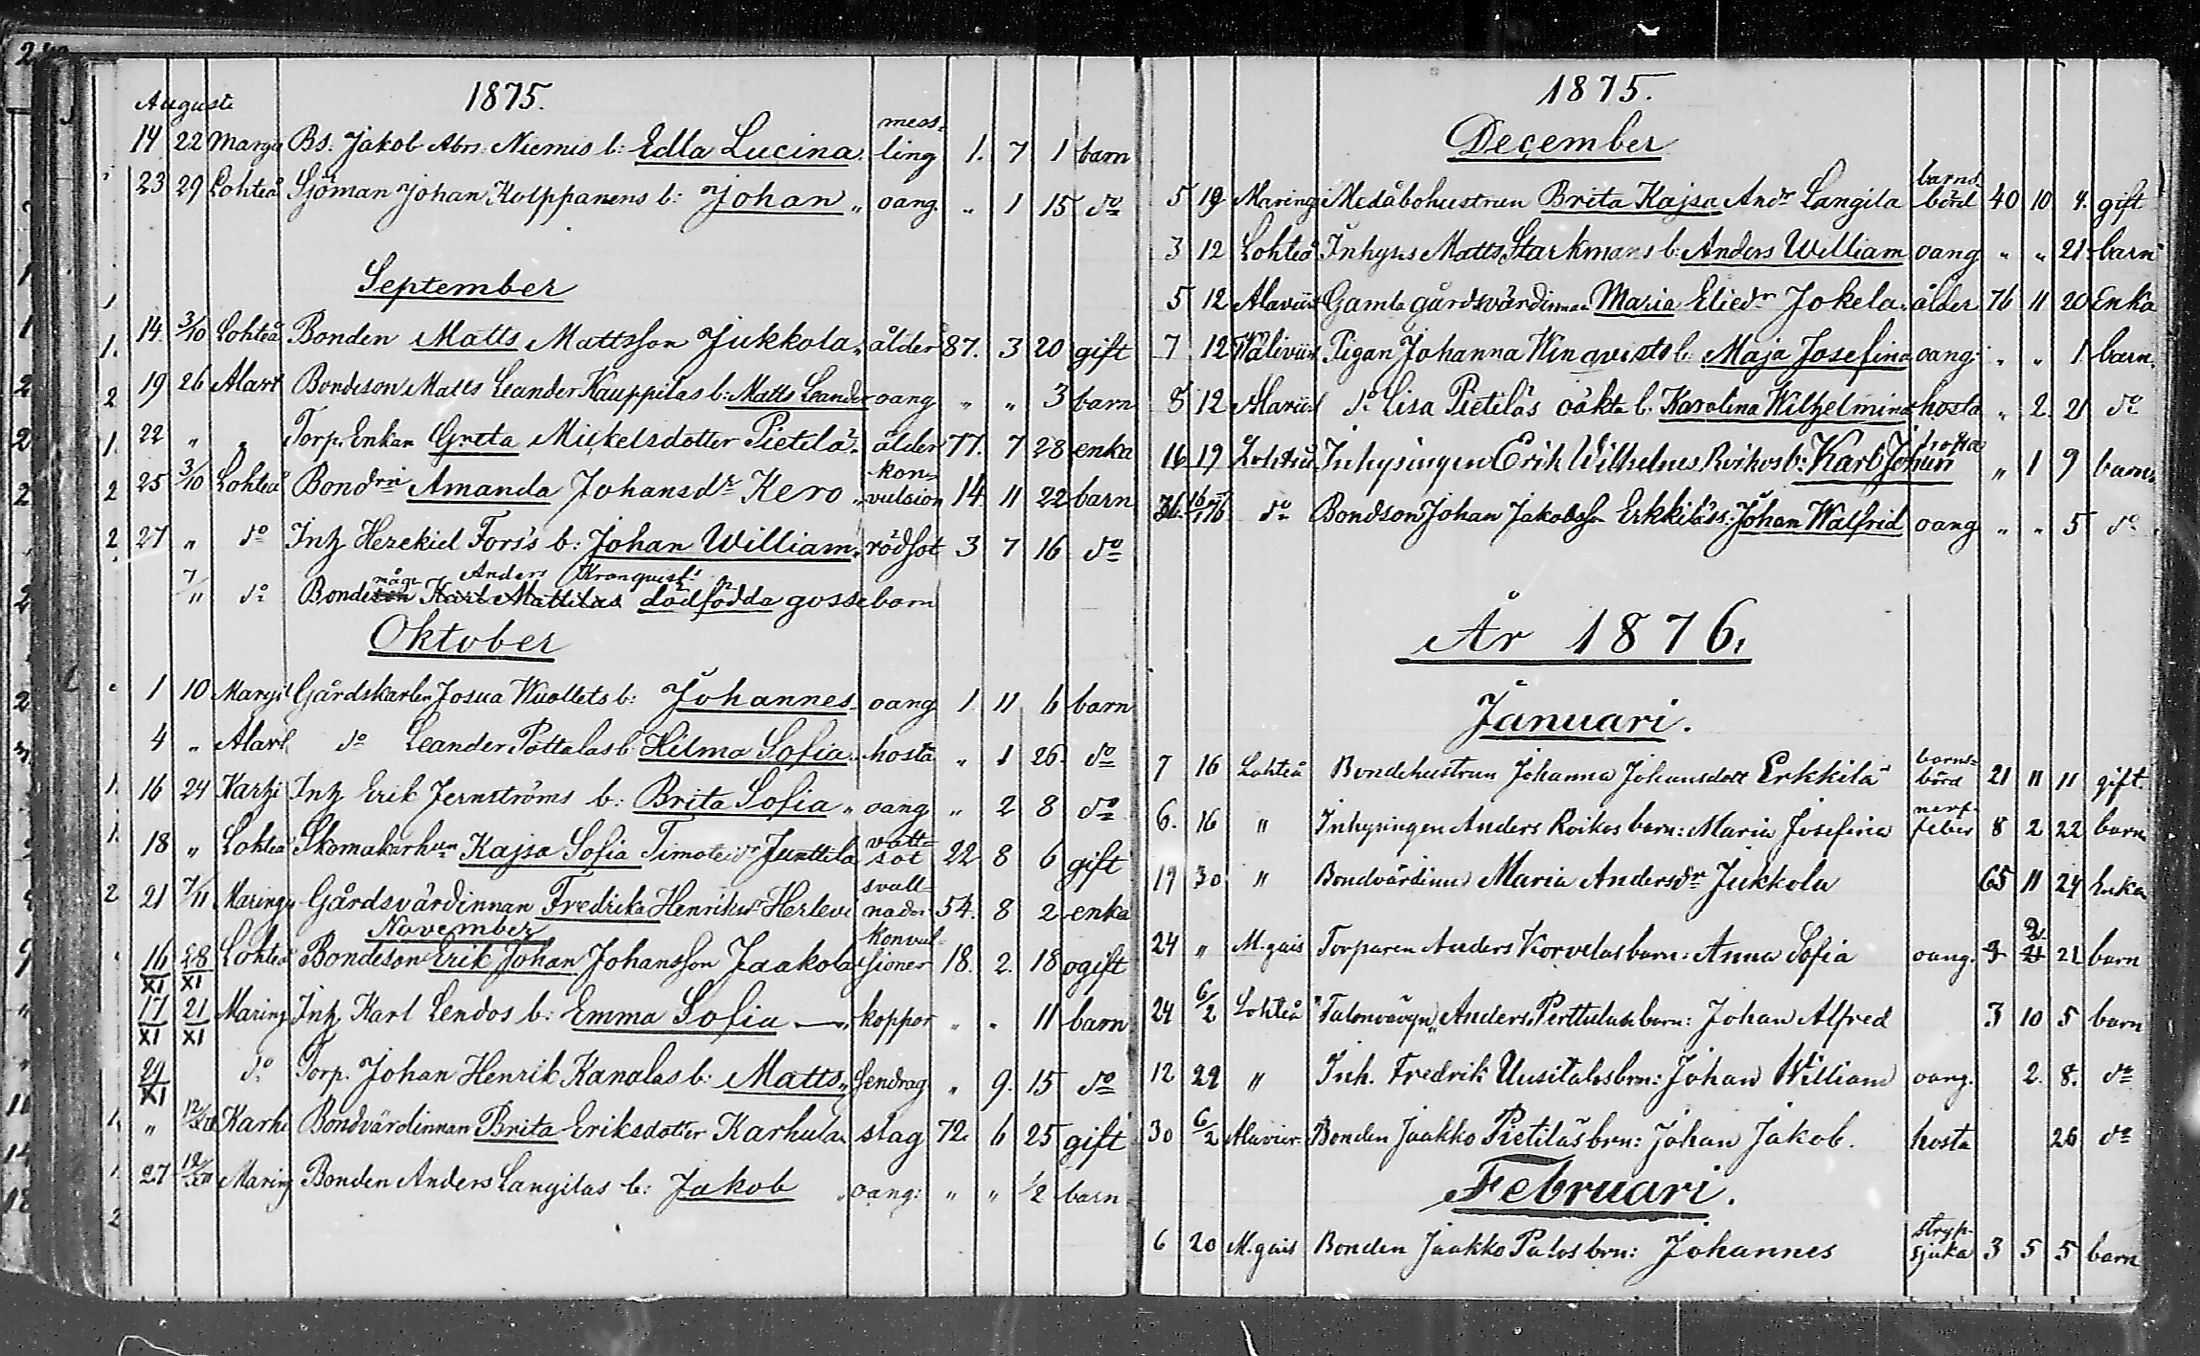 1875.
Augusti
14 22 Marg. Bs. Jakob Abrs. Niemis b: Edla Lucina. mess-ling 1. 7 1 barn
23 29 Lohteå Sjöman Johan Kolppanens b: Johan " oang. " 1 15 do
September
14 3/10 Lohteå Bonden Matts Mattsson Jukkola. ålder 87. 3 20 gift
19 26 Alavt Bondeson Matts Leander Kauppilas b: Matts Leander oang " " 3 barn
22 " " Torp. Enkan Greta Mickelsdotter Pietilä ålder 77. 7 28 enka
25 3/10 Lohteå Bondrin Amanda Johansdr Kero " kon-vulsion 14 11 22 barn
27 " do Inh Hezekiel Fors's b: Johan William. rödsot 3 7 16 do
7/11 do Bondemåge Anders Kronqvists dödfödda gossebarn
Oktober
1 10 Margit Gårdskarlen Josua Wuollets b: Johannes. oang 1 11 6 barn
4 " Alavt do Leander Pöttalas b: Hilma Sofia. hosta " 1 26. do
16 24 Karhi Inh Erik Jernströms b: Brita Sofia " oang " 2 8 do
18 " Lohteå Skomakarhun Kajsa Sofia Timoteidr Junttila vatt-sot 22 8 6 gift
21 7/11 Maring. Gårdsvärdinnan Fredrika Henriksdr Herlevi svull-nader 54. 8 2 enka
November
16/XI 28/XI Lohteå Bondeson Erik Johan Johansson Jaakola konvul-sioner 18. 2. 18 ogift
17/XI 21/XI Maring Inh Karl Lendos b: Emma Sofia — " koppor " " 11 barn
29/XI do Torp. Johan Henrik Kanalas b: Matts " Sendrag " 9. 15 do
" 12/XII Karhi Bondvärdinnan Brita Eriksdotter Karhula slag 72. 6 25 gift
27 12/XII Maring Bonden Anders Langilas b: Jakob oang: " " 1/2 barn
1875.
December
5 19 Maring Medåbohustrun Brita Kajsa Andr Langila barns-börd 40 10 4. gift
3 12 Lohteå Inhyses Matts Starkmans b: Anders William oang " " 21 barn
5 12 Alaviirt Gamla gårdsvärdinnan Maria Eliedr Jokela. ålder 76 11 20 Enka
7 12 Wäliviirt Pigan Johanna Winqvists b: Maja Josefina oang: " " 1 barn.
8 12 Alaviirt do Lisa Pietiläs oäkta b. Karolina Wilhelmina hosta " 2. 21 do
16 19 Lohteå Inhysingen Erik Wilhelmes Roikos b: Karl Johan hosta " 1 9 barn
31. 16/1 76 do Bondson Johan Jakobsson Erkkiläs s: Johan Walfrid oang " " 5 do
År 1876.
Januari.
7 16 Lohteå Bondehustrun Johanna Johansdott Erkkilä barns-börd 21 11 11 gift.
6. 16 " Inhysingen Anders Roikos barn: Maria Josefina nerf-feber 8 2 22 barn
19 30 " Bondvärdinn. Maria Andersdr Jukkola 65 11 24 Enka
24 " M.gais Torparen Anders Korvelas barn: Anna Sofia oang. 3 2 21 barn
24 6/2 Lohteå Anders Perttulas barn: Johan Alfred 3 10 5 barn
12 29 " Inh. Fredrik Uusitalos brn: Johan William oang. 2. 8. do
30 6/2 Alavier. Bonden Jaakko Pietiläs brn: Johan Jakob. hosta 26 do
Februari.
6 20 M.gais Bonden Jaakko Palos brn: Johannes stryp-sjuka 3 5 5 barn